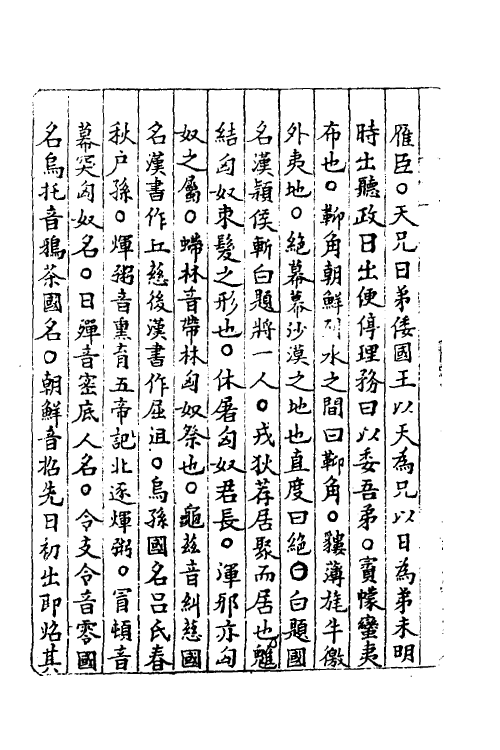 雁臣○天兄日弟倭國王以天為兄以日為弟未明
時出聽政日出便停理務曰以委吾弟○賨幏蠻夷
布也○鞮角朝鮮 水之間曰鞮角○髏薄旄牛徼
外夷地○絕幕幕沙漠之地也直度曰絕○白題國
名漢潁侯斬白題將一人○戎狄荐居聚而居也魋
結匈奴束髮之形也○休屠匈奴君長○渾邪亦匈
奴之屬○蹛林音帶林匈奴祭也○龜茲音糾慈國
名漢書作丘慈後漢書作屈沮○烏孫國名呂氏春
秋戶孫○煇粥音熏育五帝記北逐煇粥○冒頓音
幕突匈奴名○日磾音密底人名○令支令音零國
名烏托音鴉茶國名○朝鮮音招先日初出即炤其